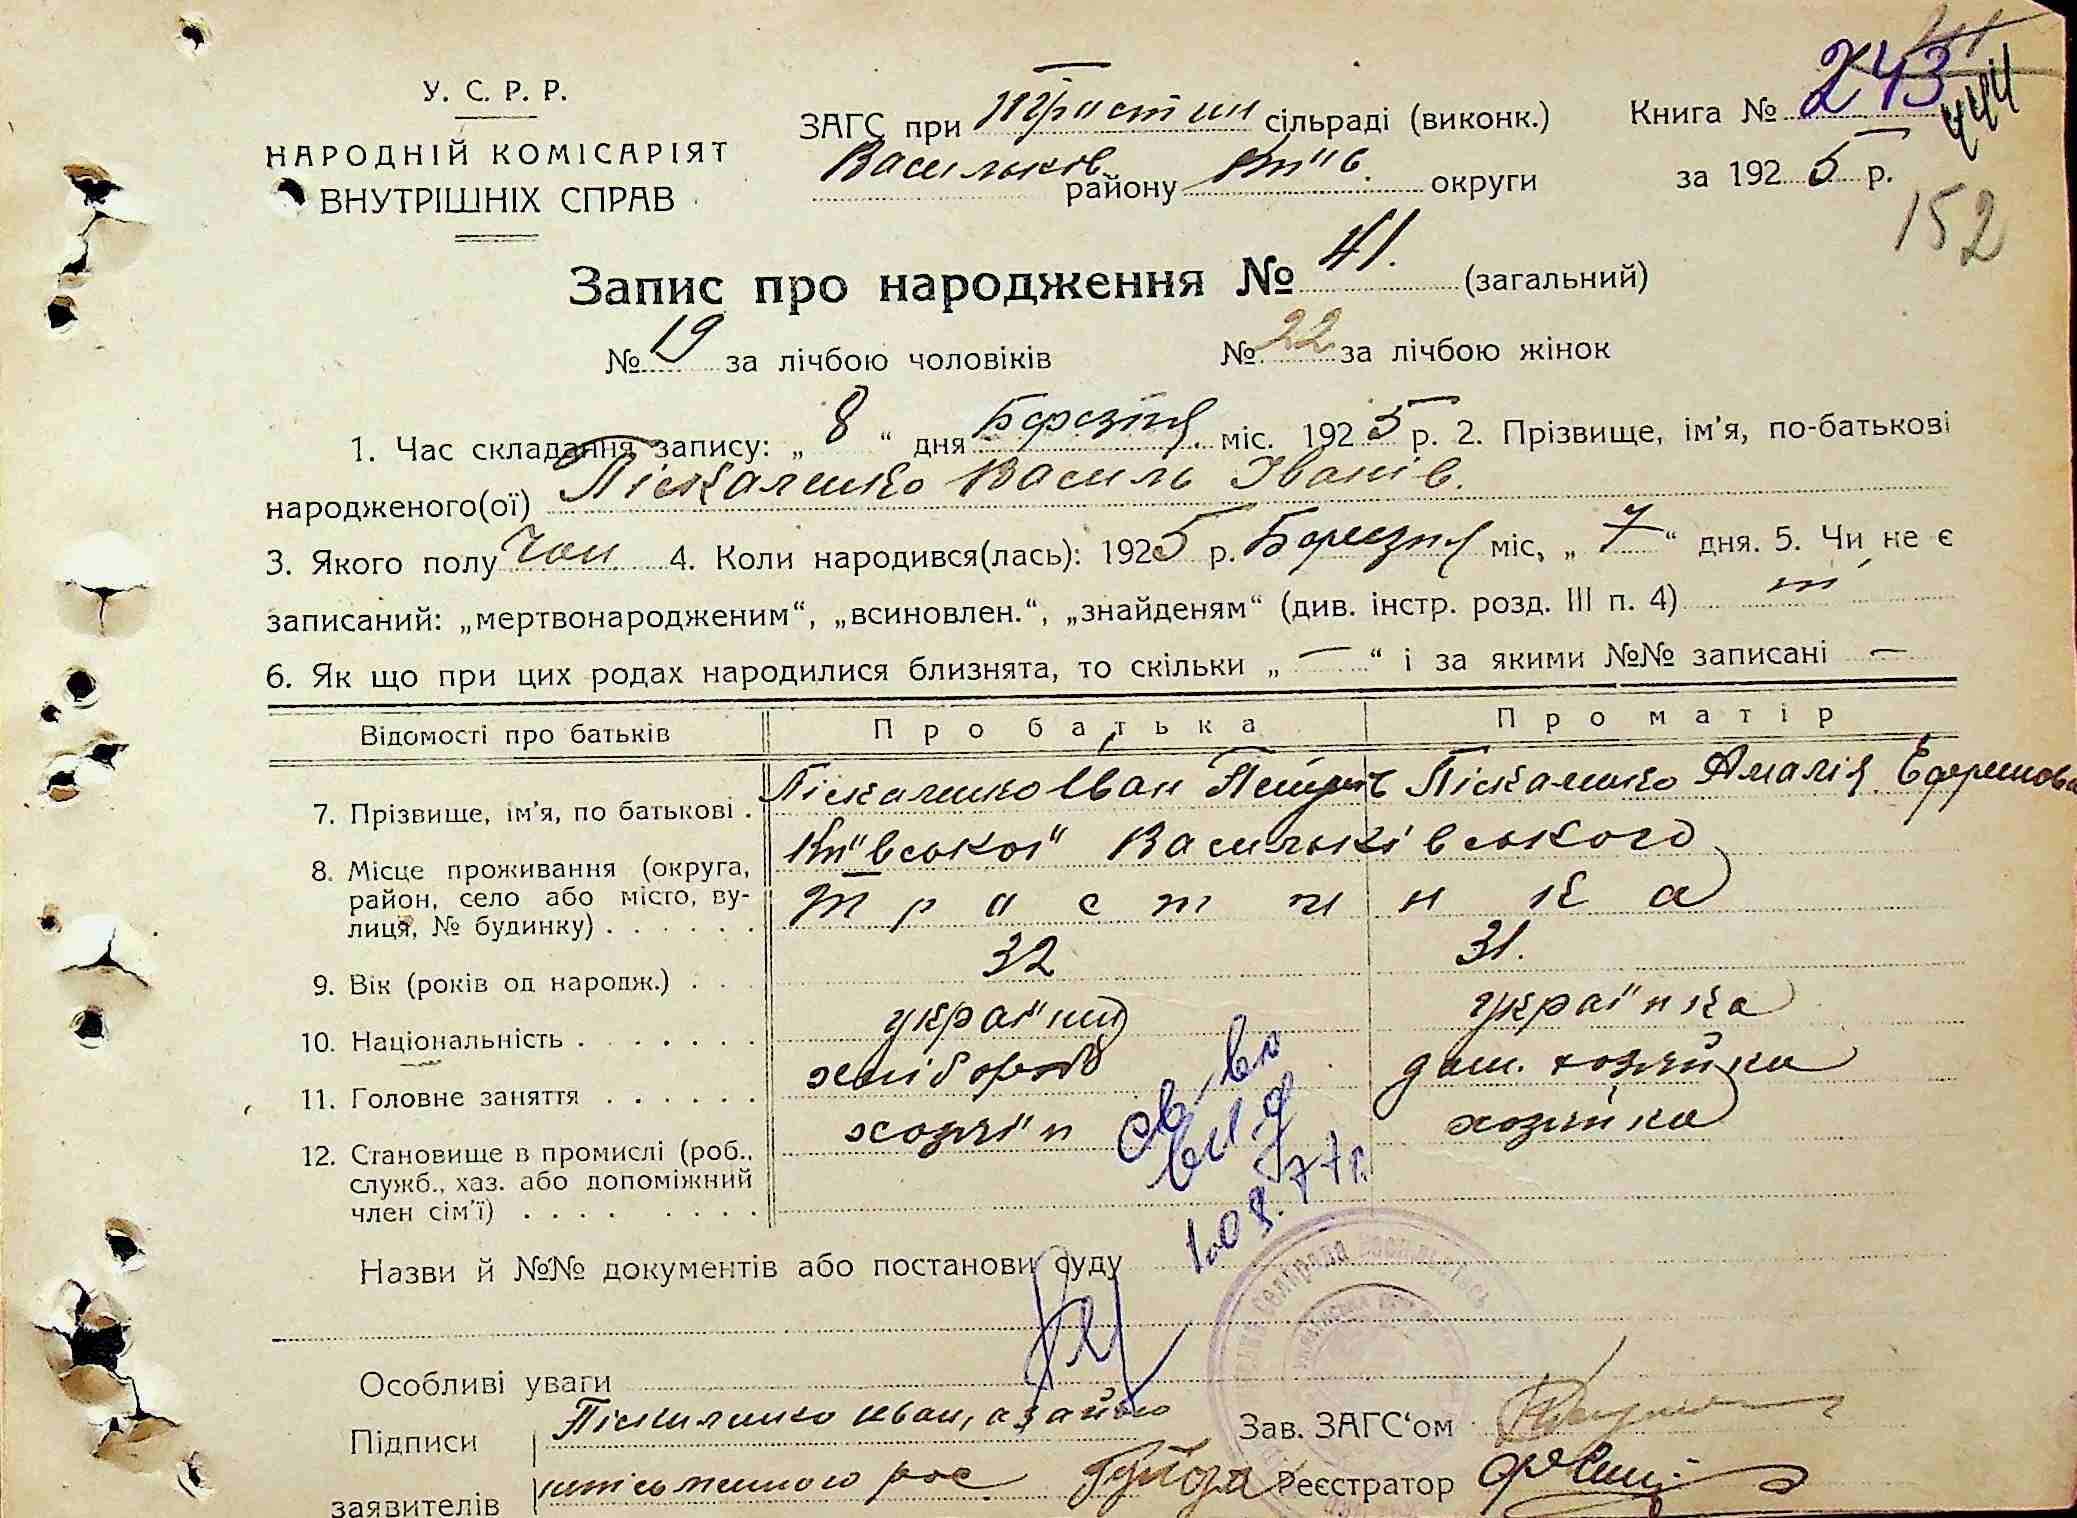 У. С. Р. Р.
НАРОДНІЙ КОМІСАРІЯТ
ВНУТРІШНІХ СПРАВ
ЗАГС при Тростин сільраді (виконк.)
Васильків районуКиїв. округи
Книга № 243
444
за 1925 р.
152
Запис про народження № 41. (загальний)
№ 19 за лічбою чоловіків № 22 за лічбою жінок
1. Час складання запису: „ 8 “ дня Березня міс. 1925 р. 2. Прізвище, ім'я, по-батькові
народженого(ої) Піскаленко Василь Іванів.
3. Якого полу чол. 4. Коли народився(лась): 1925 р. Березня міс, „ 7 “ дня. 5. Чи не є
записаний: „мертвонародженим“, „всиновлен.“, „знайденям“ (див. інстр. розд. III п. 4)
6. Як що при цих родах народилися близнята, то скільки „ — “ і за якими №№ записані —
Відомості про батьків Про батька Про матір
7. Прізвище, ім'я, по батькові . Піскаленко Іван Петрів Піскаленко Амалія Ефремова
8. Місце проживання (округа, Київської Васильківського
район, село або місто, ву- Тростинка
лиця, № будинку) . . . . . .
9. Вік (років од народж.) . . . 32 31.
10. Національність . . . . . . . українець українка
11. Головне заняття . . . . . . хлібороб дом. хозяйка
12. Становище в промислі (роб., хозяїн хозяйка
служб., хаз. або допоміжний
член сім'ї) . . . . . . . . .
св-во
выд
1.08.77г.
Назви й №№ документів або постанови суду
Особливі уваги
Підписи Піскаленко Іван, а за його
заявителів неписьменного рос
Зав. ЗАГС‘ом
Реєстратор